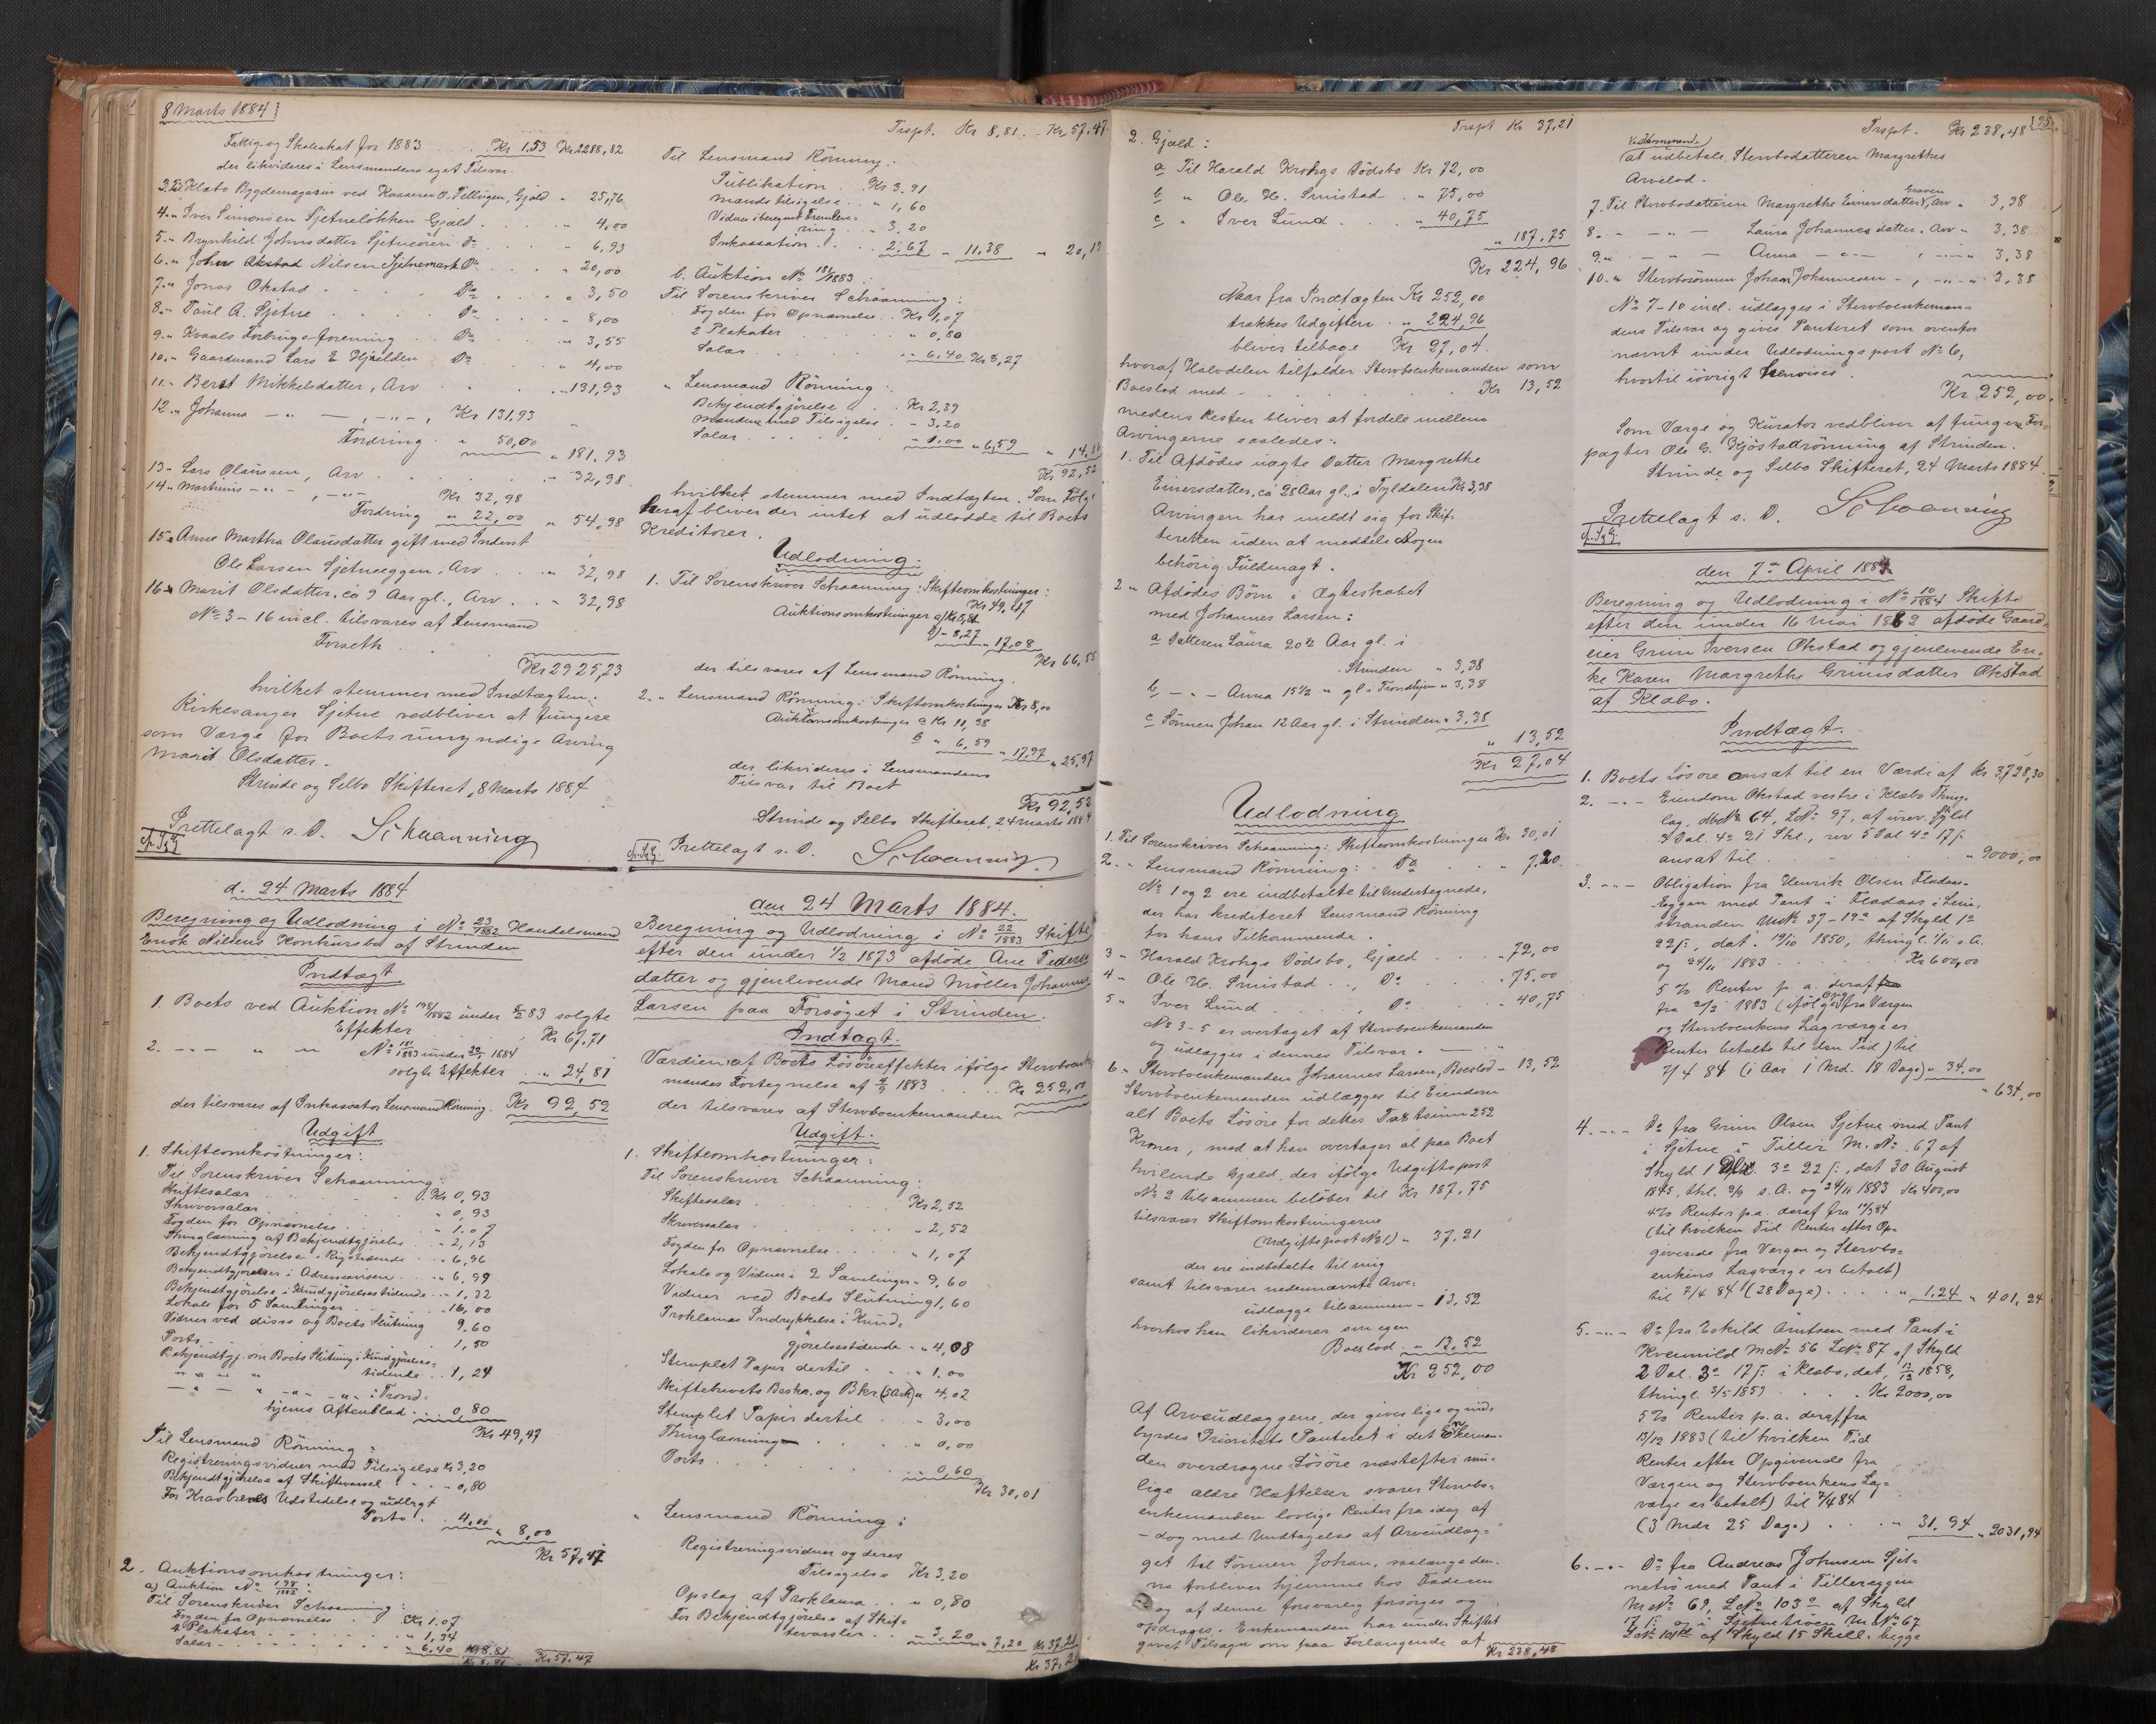 8 Marts 1884
Fattig og Skoleskat for 1883 . . Kr 1.53 Kr 2288,82
der likvideres i Lensmandens eget Tilsvar.
3. Til Klæbo Bygdemagasin ved Kasserer O. Tellugen, Gjæld " 25,76
4. " Iver Simonsen Sjetneløkken Gjæld . . . " 4,00
5. " Brynhild Johnsdatter Sjetneören Do . . " 6,93
6. " John Nilsen Sjetnemark Do . . " 20,00
7. " Jonas Okstad . . Do . . " 3,50
8. " Paul A. Sjetne . . Do . . " 8,00
9. " Kvaals Forbrugsforening . . Do . . " 3,55
10. " Gaardmand Lars Hjælden Do . . " 4,00
11. " Beret Mikkelsdatter, Arv . . " 131,93
12. " Johanna — " — , — " — , Kr 131,93
Fordring . " 50,00 " 181,93
13. " Lars Olaussen, Arv . . . " 32,98
14. " Martinus — " — , — " — Kr 32,98
Fordring " 22,00 " 54,98
15. " Anne Martha Olausdatter gift med Inderst
Ole Larsen Sjetneeggen, Arv . . " 32,98
16. " Marit Olsdatter, ca 9 Aar gl., Arv . . " 32,98
No 3 - 16 incl. tilsvares af Lensmand
Forseth
Kr 2925,23
hvilket stemmer med Indtægten.
Kirkesanger Sjetne vedbliver at fungere
som Værge for Boets umyndige Arving
Marit Olsdatter.
Strinde og Selbo Skifteret, 8 Marts 1884
Schaanning
Prettelagt s. D.
d. 24 Marts 1884
Beregning og Udlodning i No 23/1882 Handelsmand
Enok Nilsens Konkursbo af Strinden
Indtægt
1. Boets ved Auktion No 198/1882 under 83 solgte
Effekter . . . Kr 67,71
2. — " — " — No 181/1883 under 1884
solgte Effekter . . " 24,81
der tilsvares af Inkassator Lensmand Rönning. Kr 92,52
Udgift
1. Skifteomkostninger:
Til Sorenskriver Schaanning:
Skiftesalær . . Kr 0,93
Skriversalær . . " 0,93
Fogden for Opnævnelse . . " 1,07
Thinglæsning af Bekjendtgjörelse . . " 2,13
Bekjendtgjörelse i Rigstidende . . " 6,96
Bekjendtgjörelser i Adresseavisen . . " 6,99
Bekjendtgjörelse i Kundgjörelsestidende . . " 1,32
Lokale for 5 Samlinger . . " 16,00
Vidner ved disse og Boets Slutning 9,60
Porto . . 1,50
Bekjendtgj. om Boets Slutning i Kundgjörelses-
tidende . . 1,24
— " — " — " — i Trond-
hjems Aftenblad . . 0,80
Kr 49,47
Til Lensmand Rönning:
Registreringsvidner med Tilsigelse Kr 3,20
Bekjendtgjörelse af Skiftevarsel . . " 0,80
For Kravbrevs Udstedelse og udlagt
Porto . . 4,00 " 8,00
Kr 57,47
2. Auktionsomkostninger:
a) Auktion No 198/1882:
Til Sorenskriver Schaanning:
Fogden for Opnævnelse . . Kr 1,07
2 Plakater . . " 1,34
Salær . . " 6,40 Kr 8,81
Kr 8,81 Kr 57,47
Trspt. Kr 8,81 . Kr 57,47
Til Lensmand Rönning:
Publikation . . Kr 3,91
Mands tilsigelse . . " 1,60
Vidner iberegnet Fremleve-
ring . . " 3,20
Inkassation . . 2,67 " 11,38 " 20,19
b. Auktion No 181/1883:
Til Sorenskriver Schaanning:
Fogden for Opnævnelse . . Kr 1,07
2 Plakater . . " 0,80
Salær . . " 6,40 Kr 8,27
" Lensmand Rönning:
Bekjendtgjörelse . . Kr 2,39
Mandene med Tilsigelse . . " 3,20
Salær . . " 1,00 " 6,59 " 14,86
Kr 92,52
hvilket stemmer med Indtægten. Som Følge
heraf bliver der intet at udlodde til Boets
Kreditorer.
Udlodning.
1. Til Sorenskriver Schaanning: Skifteomkostninger:
Kr 49,47
Auktionsomkostninger a) Kr 8,81
b) " 8,27 " 17,08
Kr 66,55
der tilsvares af Lensmand Rönning.
2. " Lensmand Rönning: Skifteomkostninger Kr 8,00
Auktionsomkostninger a Kr 11,38
b " 6,59 " 17,97 " 25,97
der likvideres i Lensmandens
Tilsvar til Boet
Kr 92,52
Strinde og Selbo Skifteret, 24 Marts 1884
Prettelagt s. D. Schaanning
den 24 Marts 1884.
Beregning og Udlodning i No 22/1883 Skifte
efter den under 1/2 1873 afdöde Ane Peders-
datter og gjenlevende Mand Möller Johannes
Larsen paa Forsöget i Strinden.
Indtægt.
Værdien af Boets Lösöreeffekter ifölge Stervboenke-
mandes Fortegnelse af 1883 . . Kr 252,00
der tilsvares af Stervboenkemanden
Udgift.
1. Skifteomkostninger:
Til Sorenskriver Schaanning:
Skiftesalær . . Kr 2,52
Skriversalær . . " 2,52
Fogden for Opnævnelse . . " 1,07
Lokale og Vidner i 2 Samlinger " 9,60
Vidner ved Boets Slutning 1,60
Proklamas Indrykkelse i Kund-
gjörelsestidende . . " 4,08
Stemplet Papir dertil . . " 1,00
Skiftebrevets Beskr. og Bkr (3 Ark) " 4,02
Stemplet Papir dertil . . " 3,00
Thinglæsning . . " 0,00
Porto . . " 0,60
Kr 30,01
" Lensmand Rönning:
Registreringsvidner og deres
Tilsigelse Kr 3,20
Opslag af Proklama . . " 0,80
For Bekjendtgjörelse af Skif-
tevarsler . . " 3,20 " 7,20 Kr 37,21
Kr 37,21
Trspt Kr 37,21
2. Gjæld:
a Til Harald Krohgs Dödsbo Kr 72,00
b " Ole H. Smistad . . " 75,00
c " Iver Lund . . " 40,75
" 187,75
Kr 224,96
Naar fra Indtægten Kr 252,00
trækkes Udgiften . " 224,96
bliver tilbage Kr 27,04.
hvoraf Halvdelen tilfalder Stervboenkemanden som
Boeslod med . . Kr 13,52
medens Resten bliver at fordele mellem
Arvingerne saaledes:
1. Til Afdödes uægte Datter Margrethe
Einersdatter, ca 28 Aar gl., i Tyldalen Kr 3,38
Arvingen har meldt sig for Skif-
teretten uden at meddele Nogen
behörig Fuldmagt.
2 " Afdödes Börn i Ægteskabet
med Johannes Larsen:
a Datteren Laura 20½ Aar gl. i
Strinden " 3,38
b — " — Anna 15½ " gl i Trondhjem " 3,38
c Sönnen Johan 12 Aar gl. i Strinden " 3,38
" 13,52
Kr 27,04
Udlodning
1. Til Sorenskriver Schaanning: Skifteomkostninger Kr 30,01
2. " Lensmand Rönning: Do " 7,20.
No 1 og 2 ere indbetalte til Undertegnede,
der har krediteret Lensmand Rönning
for hans Tilkommende.
3 " Harald Krohgs Dödsbo, Gjæld . . " 72,00
4 " Ole H. Smistad . . , Do . . " 75,00
5 " Iver Lund . . , Do . . " 40,75
No 3-5 er overtaget af Stervboenkemanden
og udlægges i dennes Tilsvar.
6 " Stervboenkemanden Johannes Larsen, Boeslod " 13,52
Stervboenkemanden udlægges til Eiendom
alt Boets Lösöre for dettes Taxtsum 252
Kroner, mod at han overtager al paa Boet
hvilende Gjæld, der ifölge Udgiftspost
No 2 tilsammen belöber til Kr 187,75
tilsvarer Skifteomkostningerne
(Udgiftspost No 1) " 37,21
der ere indbetalte til mig
samt tilsvarer nedennævnte Arve-
udlægge tilsammen " 13,52
hvorhos han likviderer sin egen
Boeslod . . " 13,52
Kr 252,00
Af Arveudlæggene, der gives lige og ind-
byrdes Prioritets Panteret i det Enkeman-
den overdragne Lösöre næstefter mu-
lige ældre Hæftelser svarer Stervbo-
enkemanden lovlige Renter fra idag af
- dog med Undtagelse af Arveudlæg-
get til Sönnen Johan, saalænge den-
ne forbliver hjemme hos Faderen
og af denne forsvarlig forsörges og
opdrages. Enkemanden har under Skiftet
givet Tilsagn om paa Forlangende af
Kr 238,48
Trspt. Kr 238,48
at udbetale Stervbodatteren Margrethes
Arvelod.
7. Til Stervbodatteren Margrethe Einersdatter Graven, Arv " 3,38
8. " — " — Laura Johannesdatter, Arv " 3,38
9. " — " — Anna — " — , — " — " 3,38
10. " Stervbosönnen Johan Johannesen — , — " — " 3,38
No 7-10 incl. udlægges i Stervboenkeman-
dens Tilsvar og gives Panteret som ovenfor
nævnt under Udlodningspost No 6,
hvortil iövrigt henvises.
Kr 252,00.
Som Værge og Kurator vedbliver at fungere For-
pagter Ole G. Kjöstadrönning af Strinden.
Strinde og Selbo Skifteret, 24 Marts 1884
Schaanning
Prettelagt s. D.
den 7de April 1884
Beregning og Udlodning i No 10/1884 Skifte
efter den under 16 Mai 1862 afdöde Gaard-
eier Grim Iversen Okstad og gjenlevende En-
ke Karen Margrethe Grimsdatter Okstad
af Klæbo.
Indtægt.
1. Boets Lösöre ansat til en Værdi af Kr 3,728,30
2. — " — Eiendom Okstad vestre i Klæbo Thing-
lag, MNo 64, LNo 97, af urev. Skyld
3 Dal. 4 21 Skl., rev 5 Dal 4 17 ſ.
ansat til . . " 9000,00
3. — " — Obligation fra Henrik Olsen Fladaas-
Eggen med Pant i Fladaas i Lein-
stranden MNo 37-19a af Skyld 1
22 ſ., dat. 19/10 1850, thingl. 1/11 s. A.
og 24/11 1883 . . Kr 600,00
5 % Renter p. a. deraf
fra 1883 (ifölge Opg. fra Værgen
og Stervboenkens Lagværge er
Renter betalte til den Tid) til
7/4 84 (i Aar 1 Md. 18 Dage) " 34,00
" 634,00
4. — " — Do fra Grim Olsen Sjetne med Pant
i Sjetne i Tiller M. No 67 af
Skyld 1 Dlr 3 22 ſ., dat 30 August
1845, thl. s. A. og 24/11 1883 Kr 400,00
4 % Renter p.a. deraf fra 84
(til hvilken Tid Renter efter Op-
givende fra Værgen og Stervbo-
enkens Lagværge er betalt)
til 7/4 84 (28 Dage) . . " 1,24 " 401,24
5. — " — Do fra Eskild Arntsen med Pant i
Kvenild MNo 56 LNo 87 af Skyld
2 Dal. 3 17 ſ. i Klæbo, dat, 1858,
thingl. 3/5 1859 . . Kr 2000,00
5 % Renter p. a. deraf fra
13/12 1883 (til hvilken Tid
Renter efter Opgivende fra
Værgen og Stervboenkens Lag-
værge er betalt) til 7/4 84
(3 Mdr 25 Dage) . . " 31,94 " 2031,94
6. — " — Do fra Andreas Johnsen Sjet-
netrö med Pant i Tillereggen
MNo 69, LNo 103 af Skyld
17 ſ. og i Sjetnetröen MNo 67
LNo 101 af Skyld 15 Skill. begge